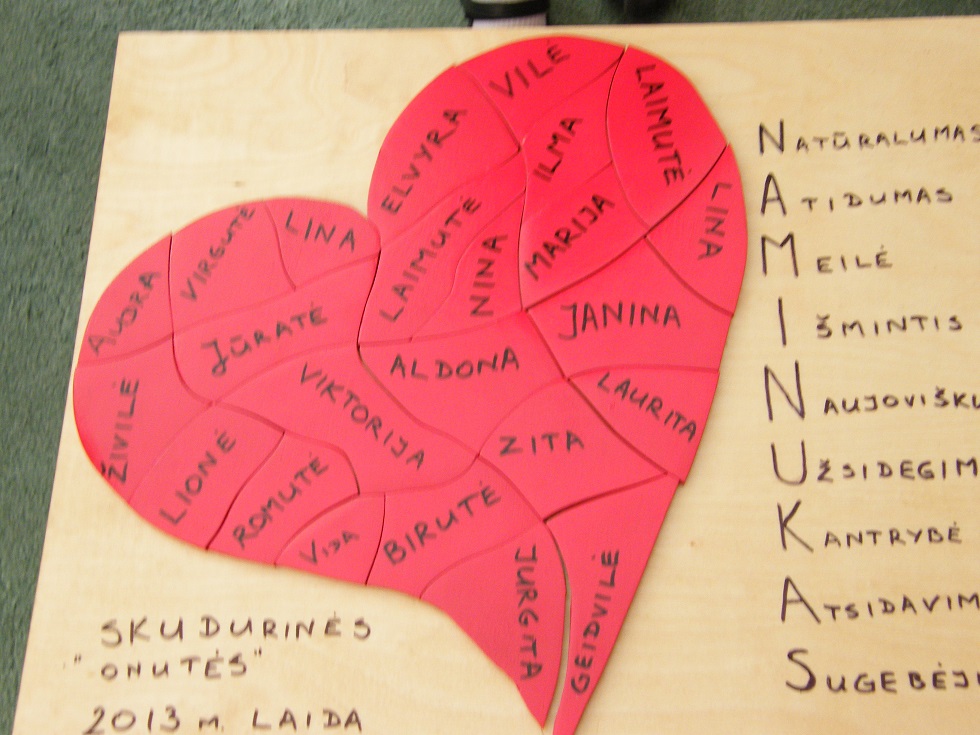 VILĖ
LAIMUTĖ
ELVYRA
ILMA
LINA
VIRGUTĖ
LINA
LAIMUTĖ
NINA
MARIJA
AUDRA
JŪRATĖ
JANINA
ALDONA
ŽIVILĖ
VIKTORIJA
LAURITA
ZITA
LIONĖ
ROMUTĖ
VIDA
BIRUTĖ
JURGITA
GEIDVILĖ
NATŪRALUMAS
ATIDUMAS
MEILĖ
IŠMINTIS
NAUJOVIŠKU
UŽSIDEGIM
KANTRYBĖ
ATSIDAVIM
SUGEBĖJI
SKUDURINĖS
"ONUTĖS"
2013 m. LAIDA